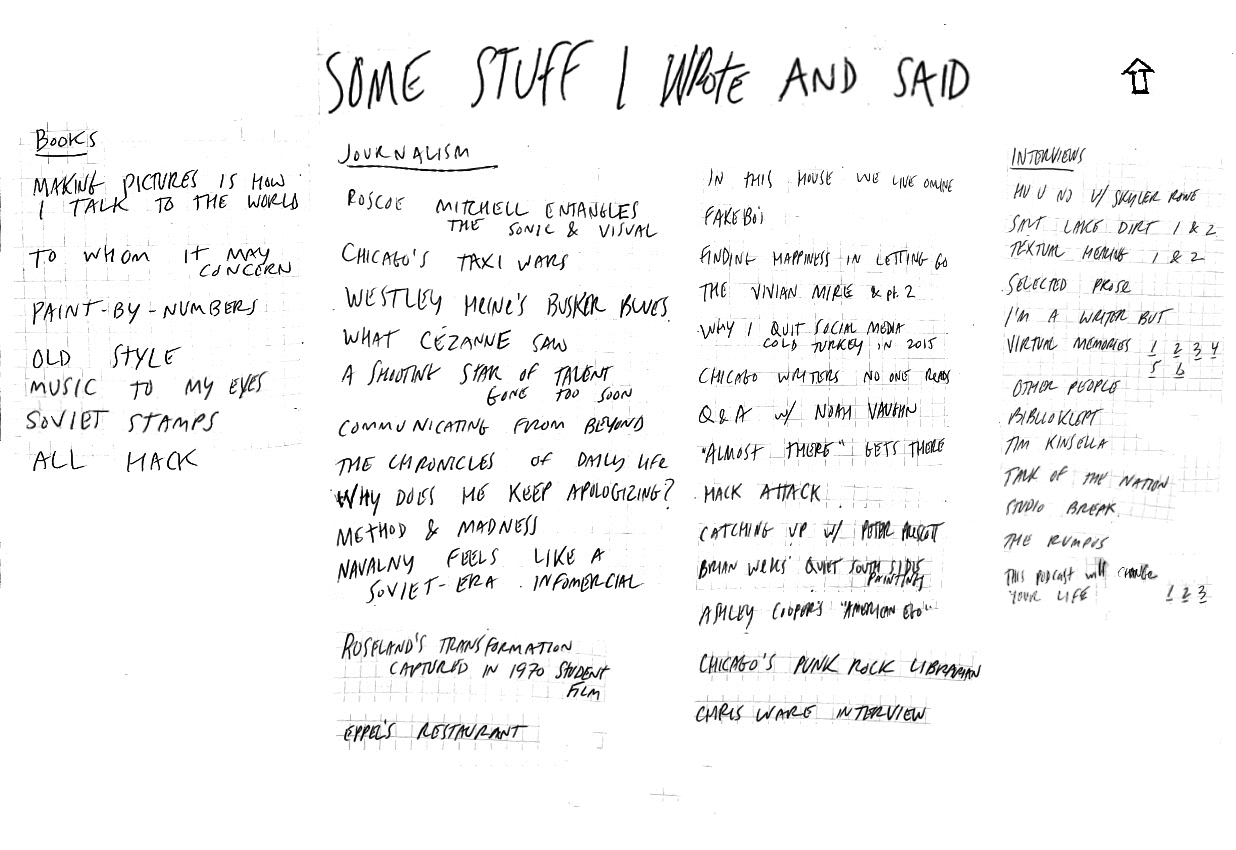 SOME STUFF I WROTE AND SAID
BOOKS
MAKING PICTURES IS HOW
I TALK TO THE WORLD
TO WHOM IT MAY
CONCERN
PAINT-BY-NUMBERS
OLD STYLE
MUSIC TO MY EYES
SOVIET STAMPS
ALL HACK
JOURNALISM
ROSCOE MITCHELL ENTANGLES
THE SONIC & VISUAL
CHICAGO'S TAXI WARS
WESTLEY HEINE'S BUSKER BLUES
WHAT CÉZANNE SAW
A SHOOTING STAR OF TALENT
GONE TOO SOON
COMMUNICATING FROM BEYOND
THE CHRONICLES OF DAILY LIFE
WHY DOES HE KEEP APOLOGIZING?
METHOD & MADNESS
NAVALNY FEELS LIKE A
SOVIET-ERA INFOMERCIAL
ROSELAND'S TRANSFORMATION
CAPTURED IN 1970 STUDENT
FILM
EPPEL'S RESTAURANT
IN THIS HOUSE WE LIVE ONLINE
FAKE BOI
FINDING HAPPINESS IN LETTING GO
THE VIVIAN MIRE & pt. 2
WHY I QUIT SOCIAL MEDIA
COLD TURKEY IN 2015
CHICAGO WRITERS NO ONE READS
Q & A W/ NOAH VAUGHN
"ALMOST THERE" GETS THERE
HACK ATTACK
CATCHING UP W/ PETER PRESCOTT
BRIAN WELLS' QUIET SOUTH SIDE
PAINTINGS
ASHLEY COOPER'S "AMERICAN EGO"
CHICAGO'S PUNK ROCK LIBRARIAN
CHRIS WARE INTERVIEW
INTERVIEWS
HU U NO W/ SKYLER ROWE
SALT LAKE DIRT 1 & 2
TEXTUAL HEALING 1 & 2
SELECTED PROSE
I'M A WRITER BUT
VIRTUAL MEMORIES 1 2 3 4
5 6
OTHER PEOPLE
BIBLIOKLEPT
TIM KINSELLA
TALK OF THE NATION
STUDIO BREAK
THE RUMPUS
THIS PODCAST WILL CHANGE
YOUR LIFE 1 2 3